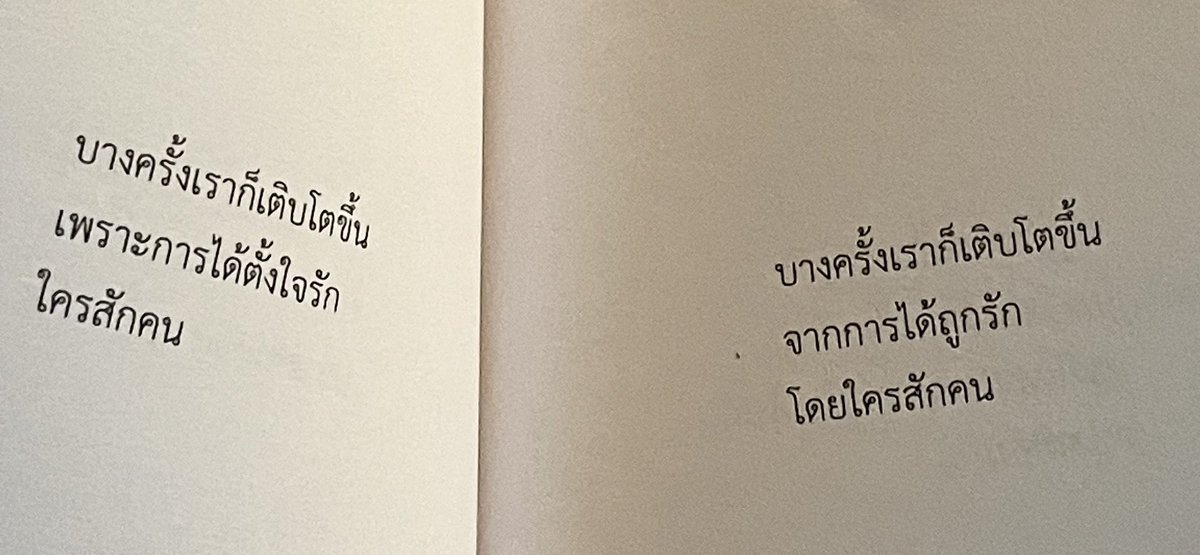 บางครั้งเราก็เติบโตขึ้น
เพราะการได้ตั้งใจรัก
ใครสักคน
บางครั้งเราก็เติบโตขึ้น
จากการได้ถูกรัก
โดยใครสักคน